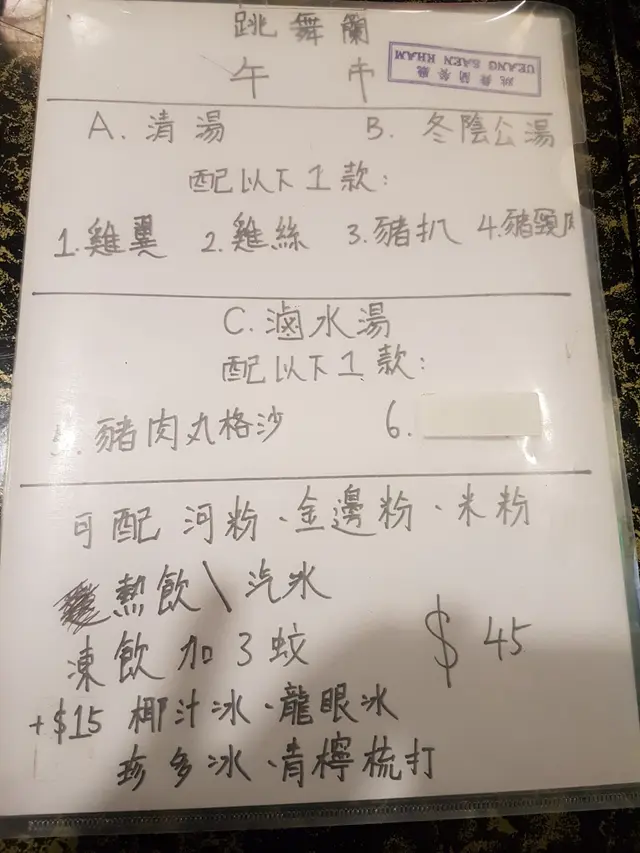 跳舞蘭
午市
跳舞蘭餐廳
UEANG SAEN KHAM
A. 清湯 B. 冬陰公湯
配以下1款:
1.雞翼 2.雞絲 3.豬扒 4.豬頸肉
C.滷水湯
配以下1款:
5.豬肉丸格沙 6.
可配 河粉、金邊粉、米粉
熱飲\汽水
凍飲加3蚊 $45
+$15 椰汁冰、龍眼冰
珍多冰、青檸梳打